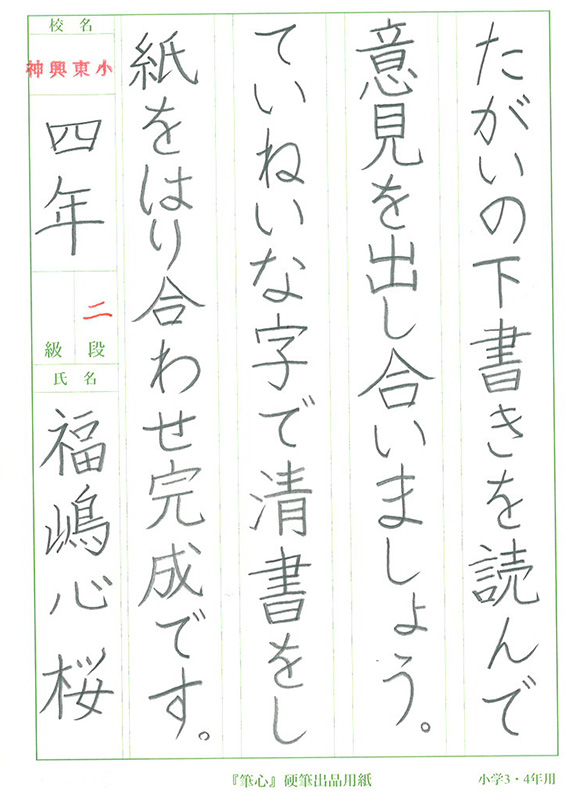 たがいの下書きを読んで
意見を出し合いましょう。
ていねいな字で清書をし
紙をはり合わせ完成です。
校名
神興東小
四年
二
段
級
氏名
福嶋心桜
『筆心』硬筆出品用紙
小学3・4年用